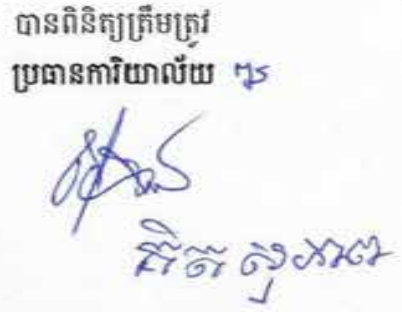 បានពិនិត្យត្រឹមត្រូវ
ប្រធានការិយាល័យ
គិត សុភាព